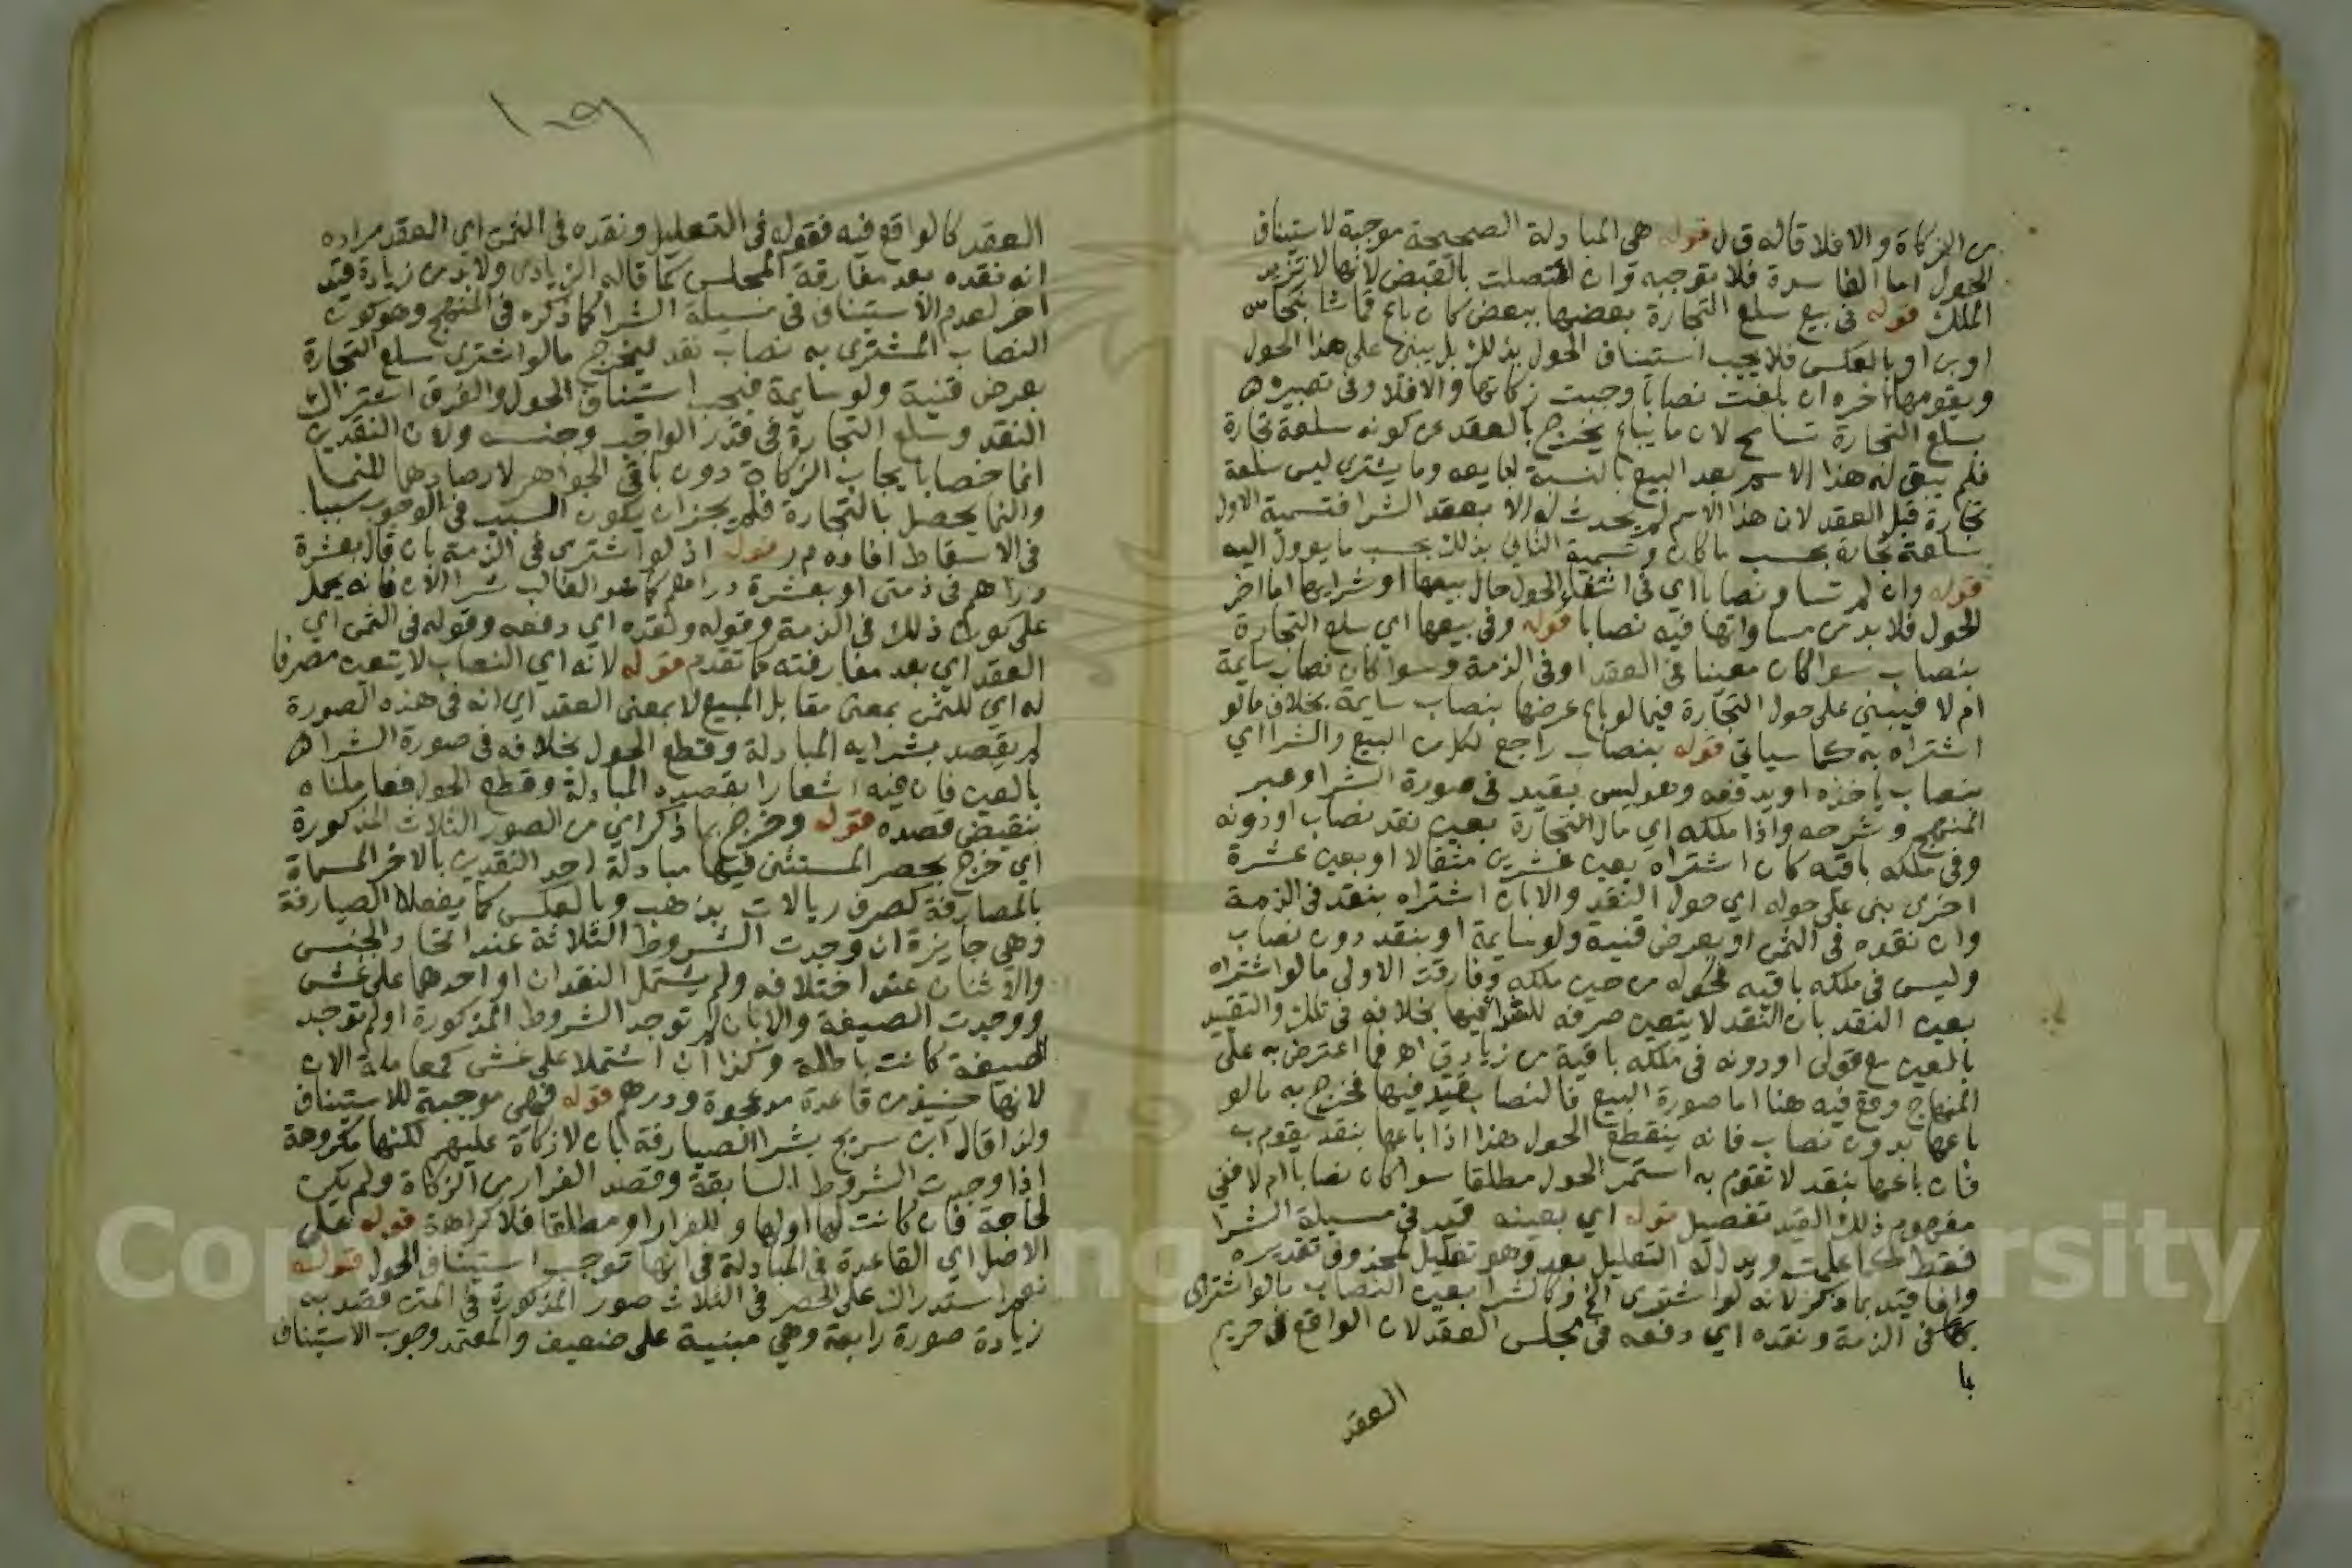 من الزكاة والا فلا قاله ق ل قوله هى المبادلة الصحيحة موجبة لاستيناف
الحول اما الفاسدة فلا توجبه وان اتصلت بالقبض لانها لا تزيد
الملك قوله فى بيع سلع التجارة بعضها ببعض كان باع قماشا بنحاس
او بن او بالعكس فلا يجب استيناف الحول بذلك بل يبنى على هذا الحول
ويقومها اخره ان بلغت نصابا وجبت زكاتها والا فلا وفى تعبيره
بسلع التجارة تسامح لان ما يباع يخرج بالعقد عن كونه سلعة تجارة
فلم يبق له هذا الاسم بعد البيع بالنسبة لبايعه وما يشترى ليس سلعة
تجارة قبل العقد لان هذا الاسم لم يحدث له الا بعقد الشرا فتسمية الاول
سلعة تجارة بحسب ما كان وتسمية الثانى بذلك بحسب ما يوول اليه
قوله وان لم تساو نصابا اى فى اثناء الحول حال بيعها او شرايها اما اخر
الحول فلا بد من مساواتها فيه نصابا قوله وفى بيعها اي سلع التجارة
بنصاب سوا كان معينا فى العقد او فى الذمة وسوا كان نصاب سايمة
ام لا فيبنى على حول التجارة فيما لو باع عرضها بنصاب سايمة بخلاف ما لو
اشتراه به كما سياتى قوله بنصاب راجع لكل من البيع والشرا اي
بنصاب ياخذه او يدفعه وهو ليس بقيد فى صورة الشرا وعبر
المنهج وشرحه واذا ملكه اي مال التجارة بعين نقد نصاب او دونه
وفى ملكه باقيه كان اشتراه بعين عشرين مثقالا او بعين عشرة
اخرى بنى على حوله اي حول النقد والا بان اشتراه بنقد فى الذمة
وان نقده فى الثمن او بعرض قنية ولو سايمة او بنقد دون نصاب
وليس فى ملكه باقيه فحوله من حين ملكه وفارقت الاولى ما لو اشتراه
بعين النقد بان النقد لا يتعين صرفه للشرا فيها بخلافه فى تلك والتقييد
بالعين مع قولى او دونه فى ملكه باقية من زيادتى اهـ فما اعترض به على
المنهاج وقع فيه هنا اما صورة البيع فالنصاب قيد فيها فخرج به ما لو
باعها بدون نصاب فانه ينقطع الحول هذا اذا باعها بنقد يقوم به
فان باعها بنقد لا تقوم به استمر الحول مطلقا سوا كان نصابا ام لا ففي
مفهوم ذلك القيد تفصيل قوله اي بعينه قيد فى مسيلة الشرا
فقط كما علمت ويدل له التعليل بعد وهو تعليل لمحذوف تقديره
وانما قيد بما ذكر لانه لو اشترى الخ وكالشرا بعين النصاب ما لو اشترى
بها فى الذمة ونقده اي دفعه فى مجلس العقد لان الواقع فى حريم
العقد
العقد كالواقع فيه فقوله فى التعليل ونقده فى الثمن اي العقد مراده
انه نقده بعد مفارقة المجلس كما قاله الزيادى ولا بد من زيادة قيد
اخر لعدم الاستيناف فى مسيلة الشرا كما ذكره فى المنهج وهو كون
النصاب المشترى به نصاب نقد ليخرج ما لو اشترى سلع التجارة
بعرض قنية ولو سايمة فيجب استيناف الحول والفرق اشتراك
النقد وسلع التجارة فى قدر الواجب وجنسه ولان النقدين
انما خصا بايجاب الزكاة دون باقى الجواهر لارصادهما للنما
والنما يحصل بالتجارة فلم يجز ان يكون السبب فى الوجوب سببا
فى الاسقاط افاده م ر قوله اذ لو اشترى فى الذمة بان قال بعشرة
دراهم فى ذمتى او بعشرة دراهم كما هو الغالب شرا الان فانه يحمل
على كون ذلك فى الذمة وقوله ونقده اي دفعه وقوله فى الثمن اي
العقد اي بعد مفارقته كما تقدم قوله لانه اي النصاب لا يتعين مصرفا
له اي للثمن بمعنى مقابل المبيع لا بمعنى العقد اي انه فى هذه الصورة
لم يقصد بشرايه المبادلة وقطع الحول بخلافه فى صورة الشرا
بالعين فان فيه اشعارا بقصده المبادلة وقطع الحول فعاملناه
بنقيض قصده قوله وخرج بما ذكر اي من الصور الثلاث المذكورة
اي خرج بحصر المستثنى فيها مبادلة احد النقدين بالاخر المسماة
بالمصارفة كصرف ريالات بذهب وبالعكس كما يفعله الصيارفة
وهي جايزة ان وجدت الشروط الثلاثة عند اتحاد الجنس
والاثنان عند اختلافه ولم يشتمل النقدان او احدهما على غش
ووجدت الصيغة والا بان لم توجد الشروط المذكورة او لم توجد
الصيغة كانت باطلة وكذا ان اشتملا على غش كمعاملة الان
لانها حينيذ من قاعدة مد عجوة ودرهم قوله فهى موجبة للاستيناف
ولذا قال ابن سريج بشر الصيارفة بان لا زكاة عليهم لكنها مكروهة
اذا وجدت الشروط السابقة وقصد الفرار من الزكاة ولم يكن
لحاجة فان كانت لها او لها وللفرار او مطلقا فلا كراهة قوله على
الاصل اي القاعدة فى المبادلة فى انها توجب استيناف الحول قوله
نعم استدراك على الحصر فى الثلاث صور المذكورة فى المتن قصد به
زيادة صورة رابعة وهي مبنية على ضعيف والمعتمد وجوب الاستيناف